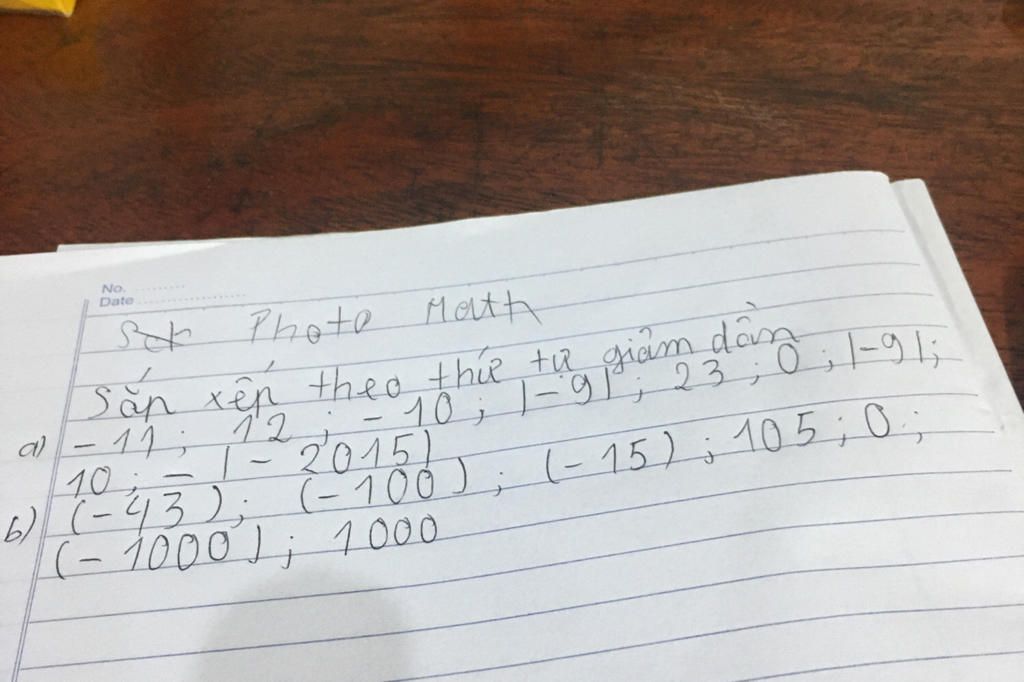 No.
Date
Photo Math
Sắp xếp theo thứ tự giảm dần
a) -11; 12; -10; |-9|; 23; 0; |-9|;
10; -|-2015|
b) (-43); (-100); (-15); 105; 0;
(-1000); 1000